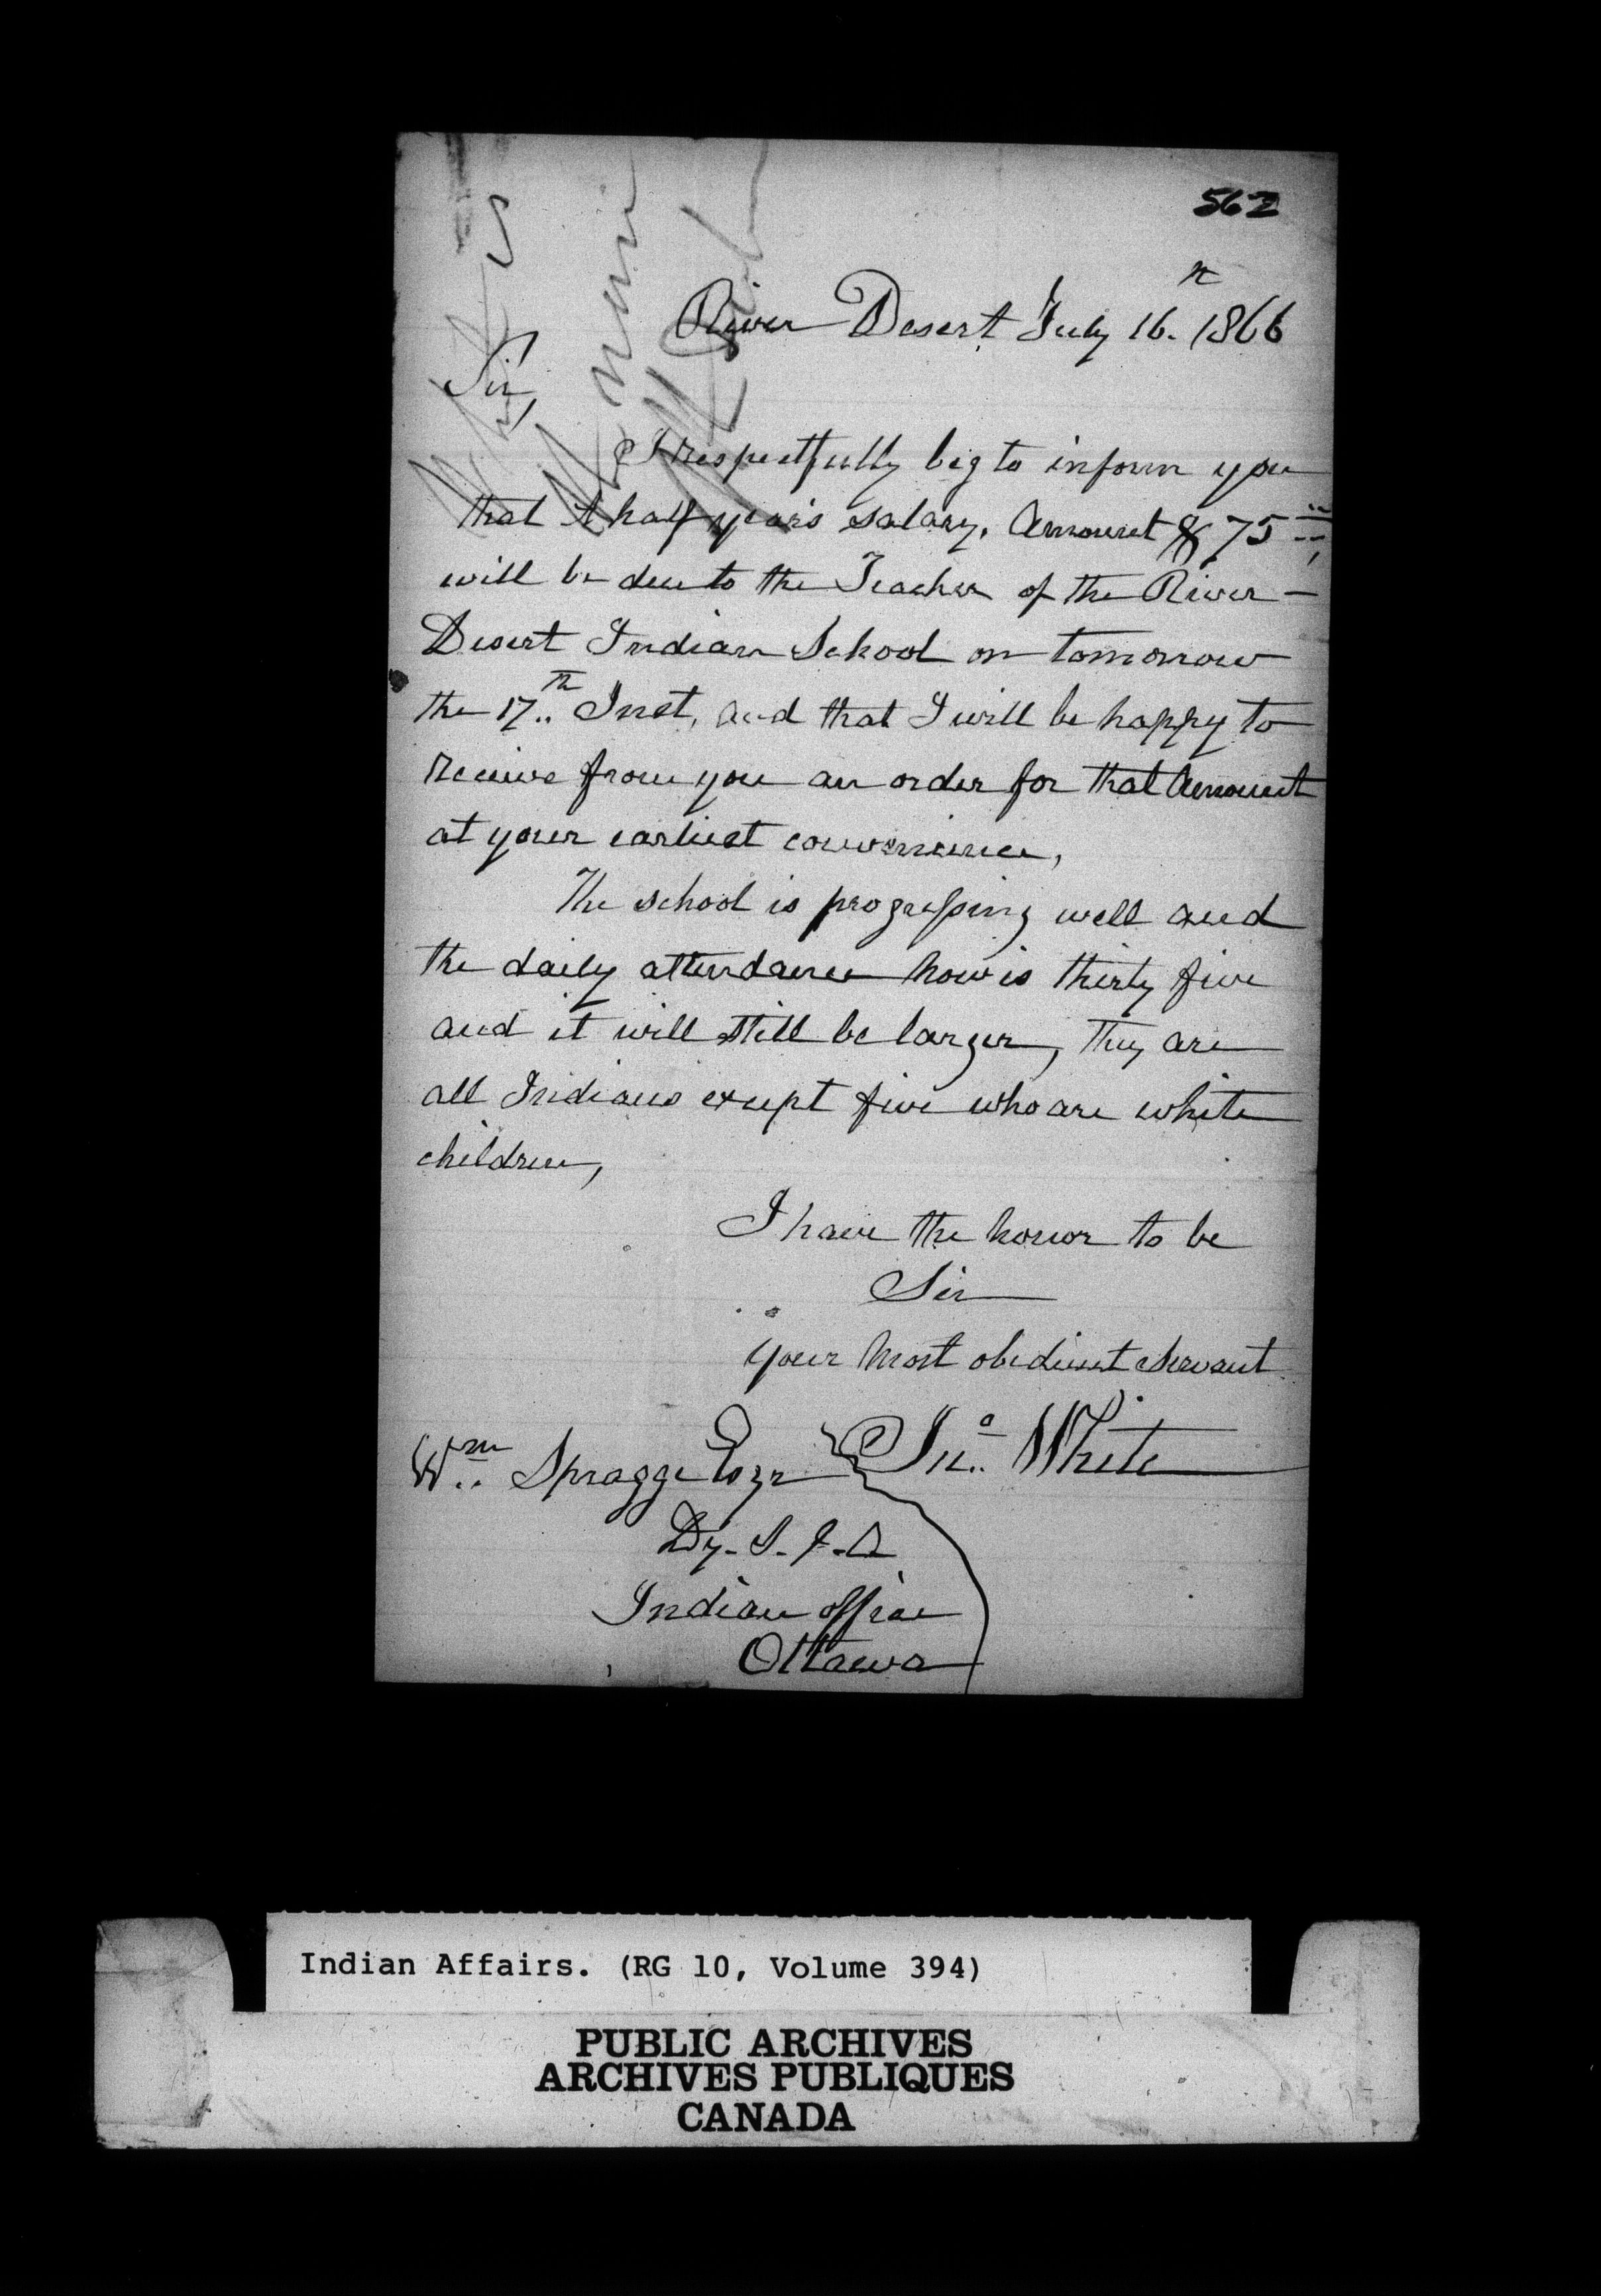 562
River Desert July 16th 1866
Sir,
I respectfully beg to inform you
that A half year's salary, Amount $75
will be due to the Teacher of the River-
Desert Indian School on tomorrow
the 17th Inst, and that I will be happy to
receive from you an order for that Amount
at your earliest convenience,
The school is progressing well and
the daily attendance now is thirty five
and it will still be larger, they are
all Indians except five who are white
children,
I have the honor to be
Sir
your most obedient servant
Jno. White
Wm. Spragge Esqr
Dy. S. I. A
Indian office
Ottawa
Indian Affairs. (RG 10, Volume 394)
PUBLIC ARCHIVES
ARCHIVES PUBLIQUES
CANADA